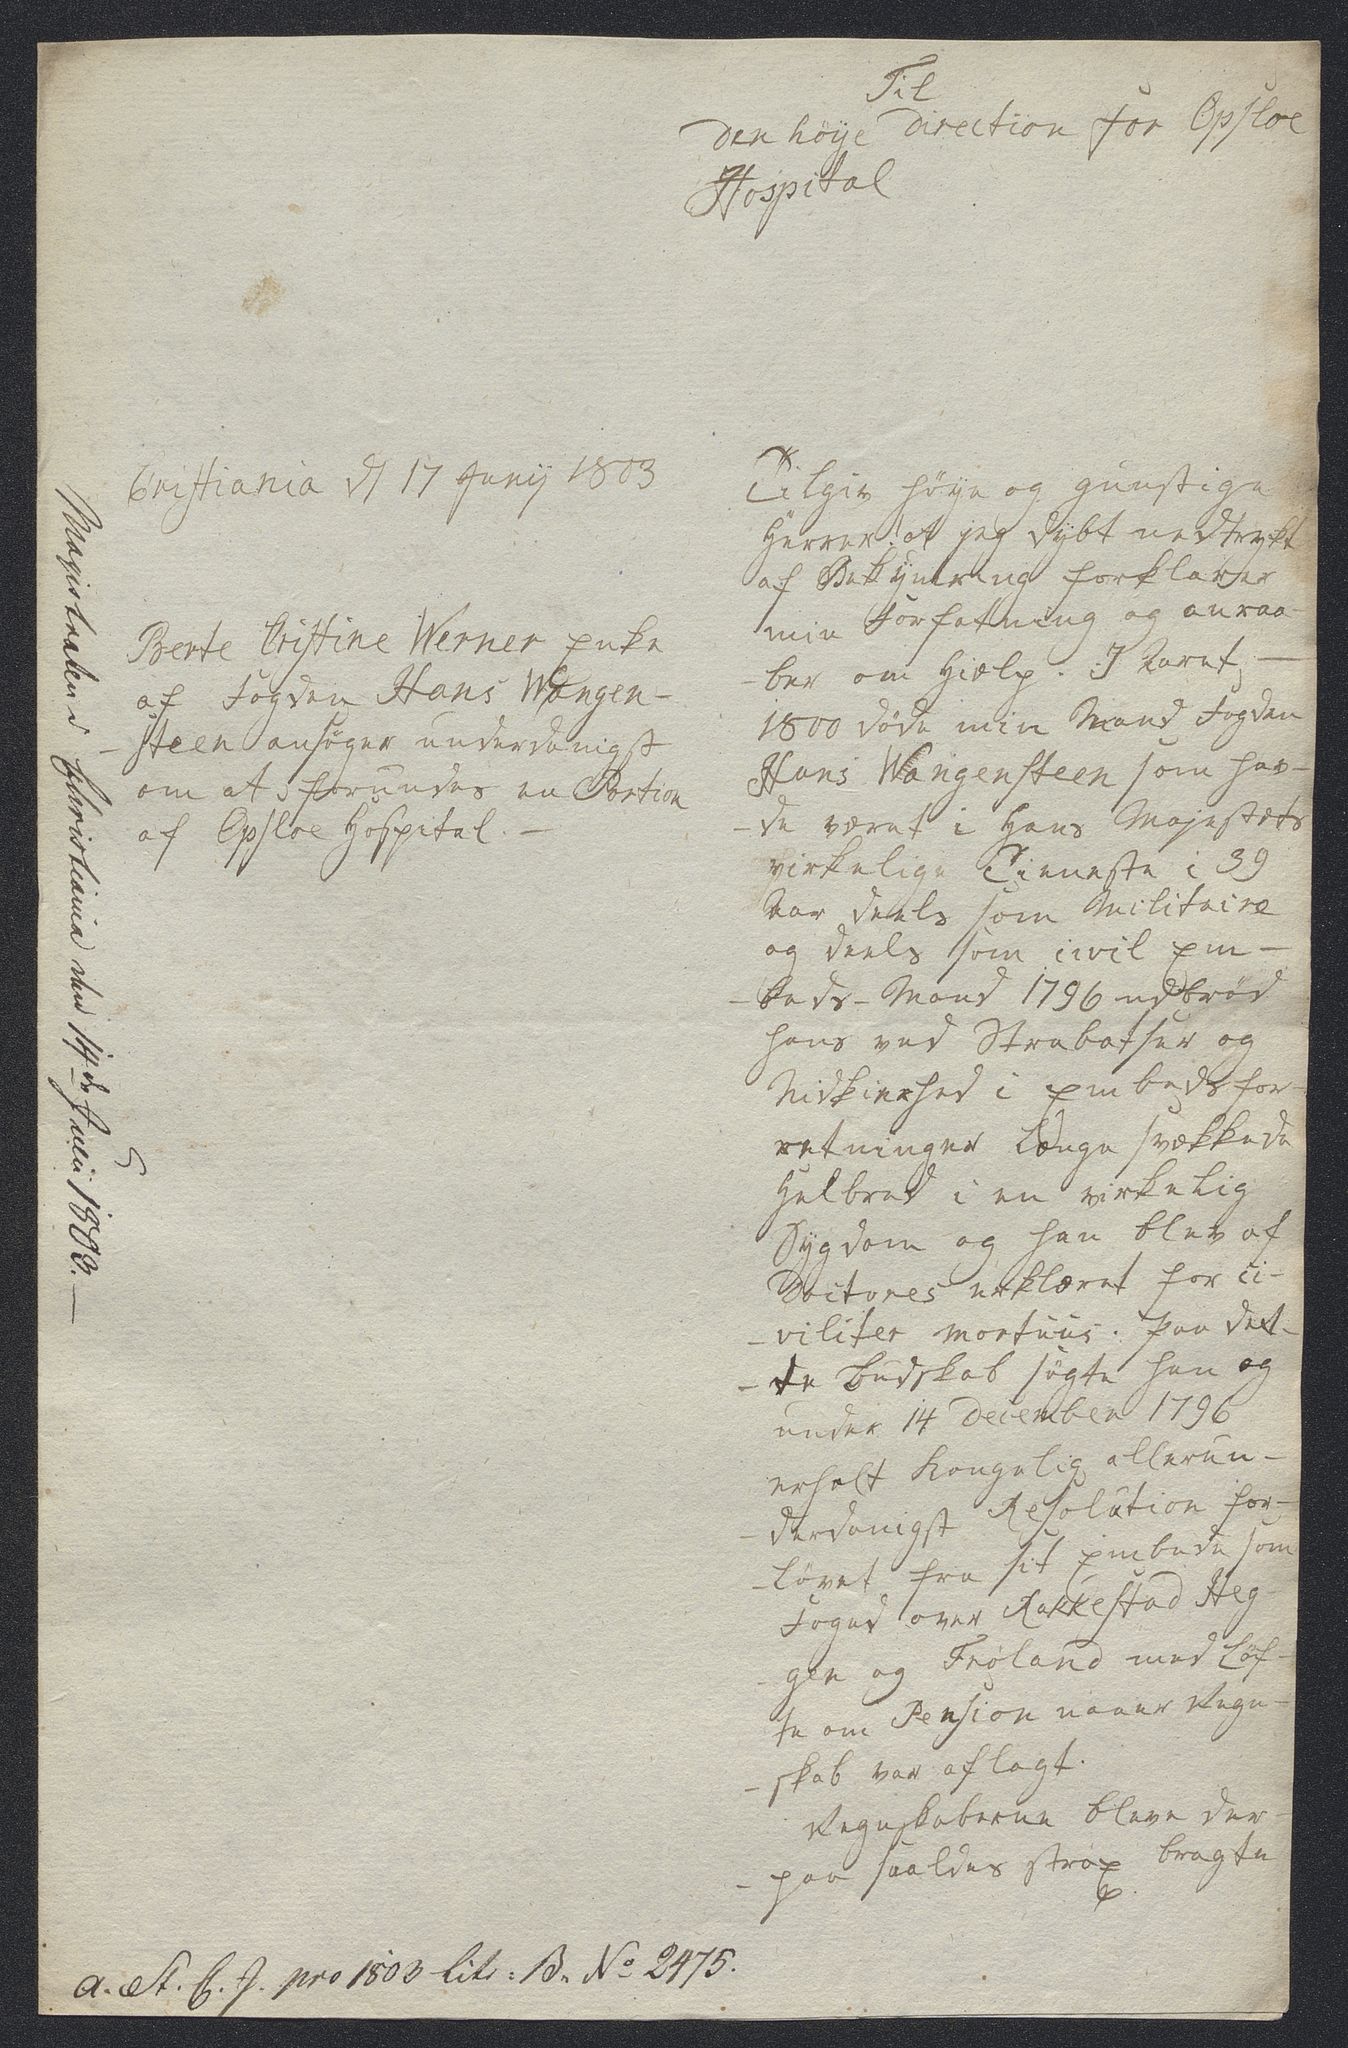 Til
den höye Direction for Opsloe
Hospital
Cristiania d 17 Junij 1803
Berte Cristine Werner Enke
af Fogden Hans Wangen-
-steen ansøger underdanigst
om at forundes en Portion
af Opsloe Hospital. -
Tilgiv høye og gunstige
Herrer! at jeg dybt nedtrykt
af Bekymring forklarer
min Forfatning og anraa-
-ber om Hielp. I Aaret
1800 døde min Mand Fogden
Hans Wangensteen som hav-
-de været i Hans Majestæts
virkelige Tieneste i 39
Aar deels som Militaire
og deels som civil Em-
-beds-Mand 1796 udbrød
hans ved Strabatser og
Nidkierhed i Embedsfor-
retninger længe svækkede
Helbred i en virkelig
Sygdom og han blev af
Doctores erklæret for ci-
-viliter mortuus. Paa det-
-te Budskab søgte han og
under 14 December 1796
erholt Kongelig allerun-
-derdanigst Resolution for-
-løvet fra sit Embede som
Foged over Rakkestad Heg-
-gen og Frøland med Løf-
te om Pension naar Regn-
-skab var aflagt.
Regnskaberne bleve der-
-paa saaledes strax bragte
Magistraten i Christiania den 14de Juli 1803. -
a. St. C. J. pro 1803 Litr: B. No 2475.